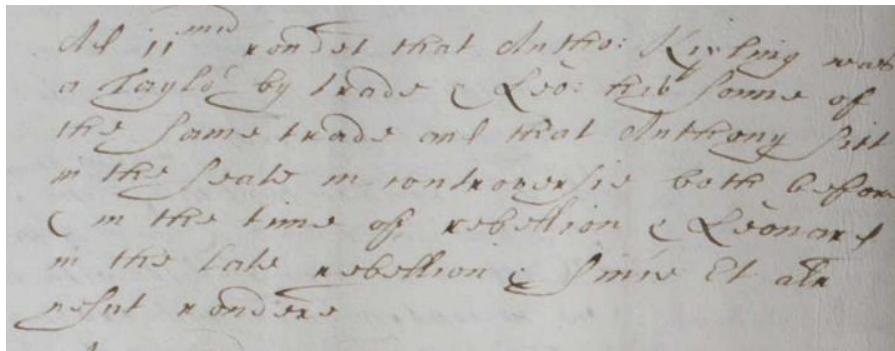 Ad ii mũ rondet that Antho: Kipling was
a Taylor by trade & Leo: his sonne of
the same trade and that Anthony sitt
in the seate in controversie both before
& in the time of rebellion & Leonard
in the late rebellion & since Et alr
nescit rondere